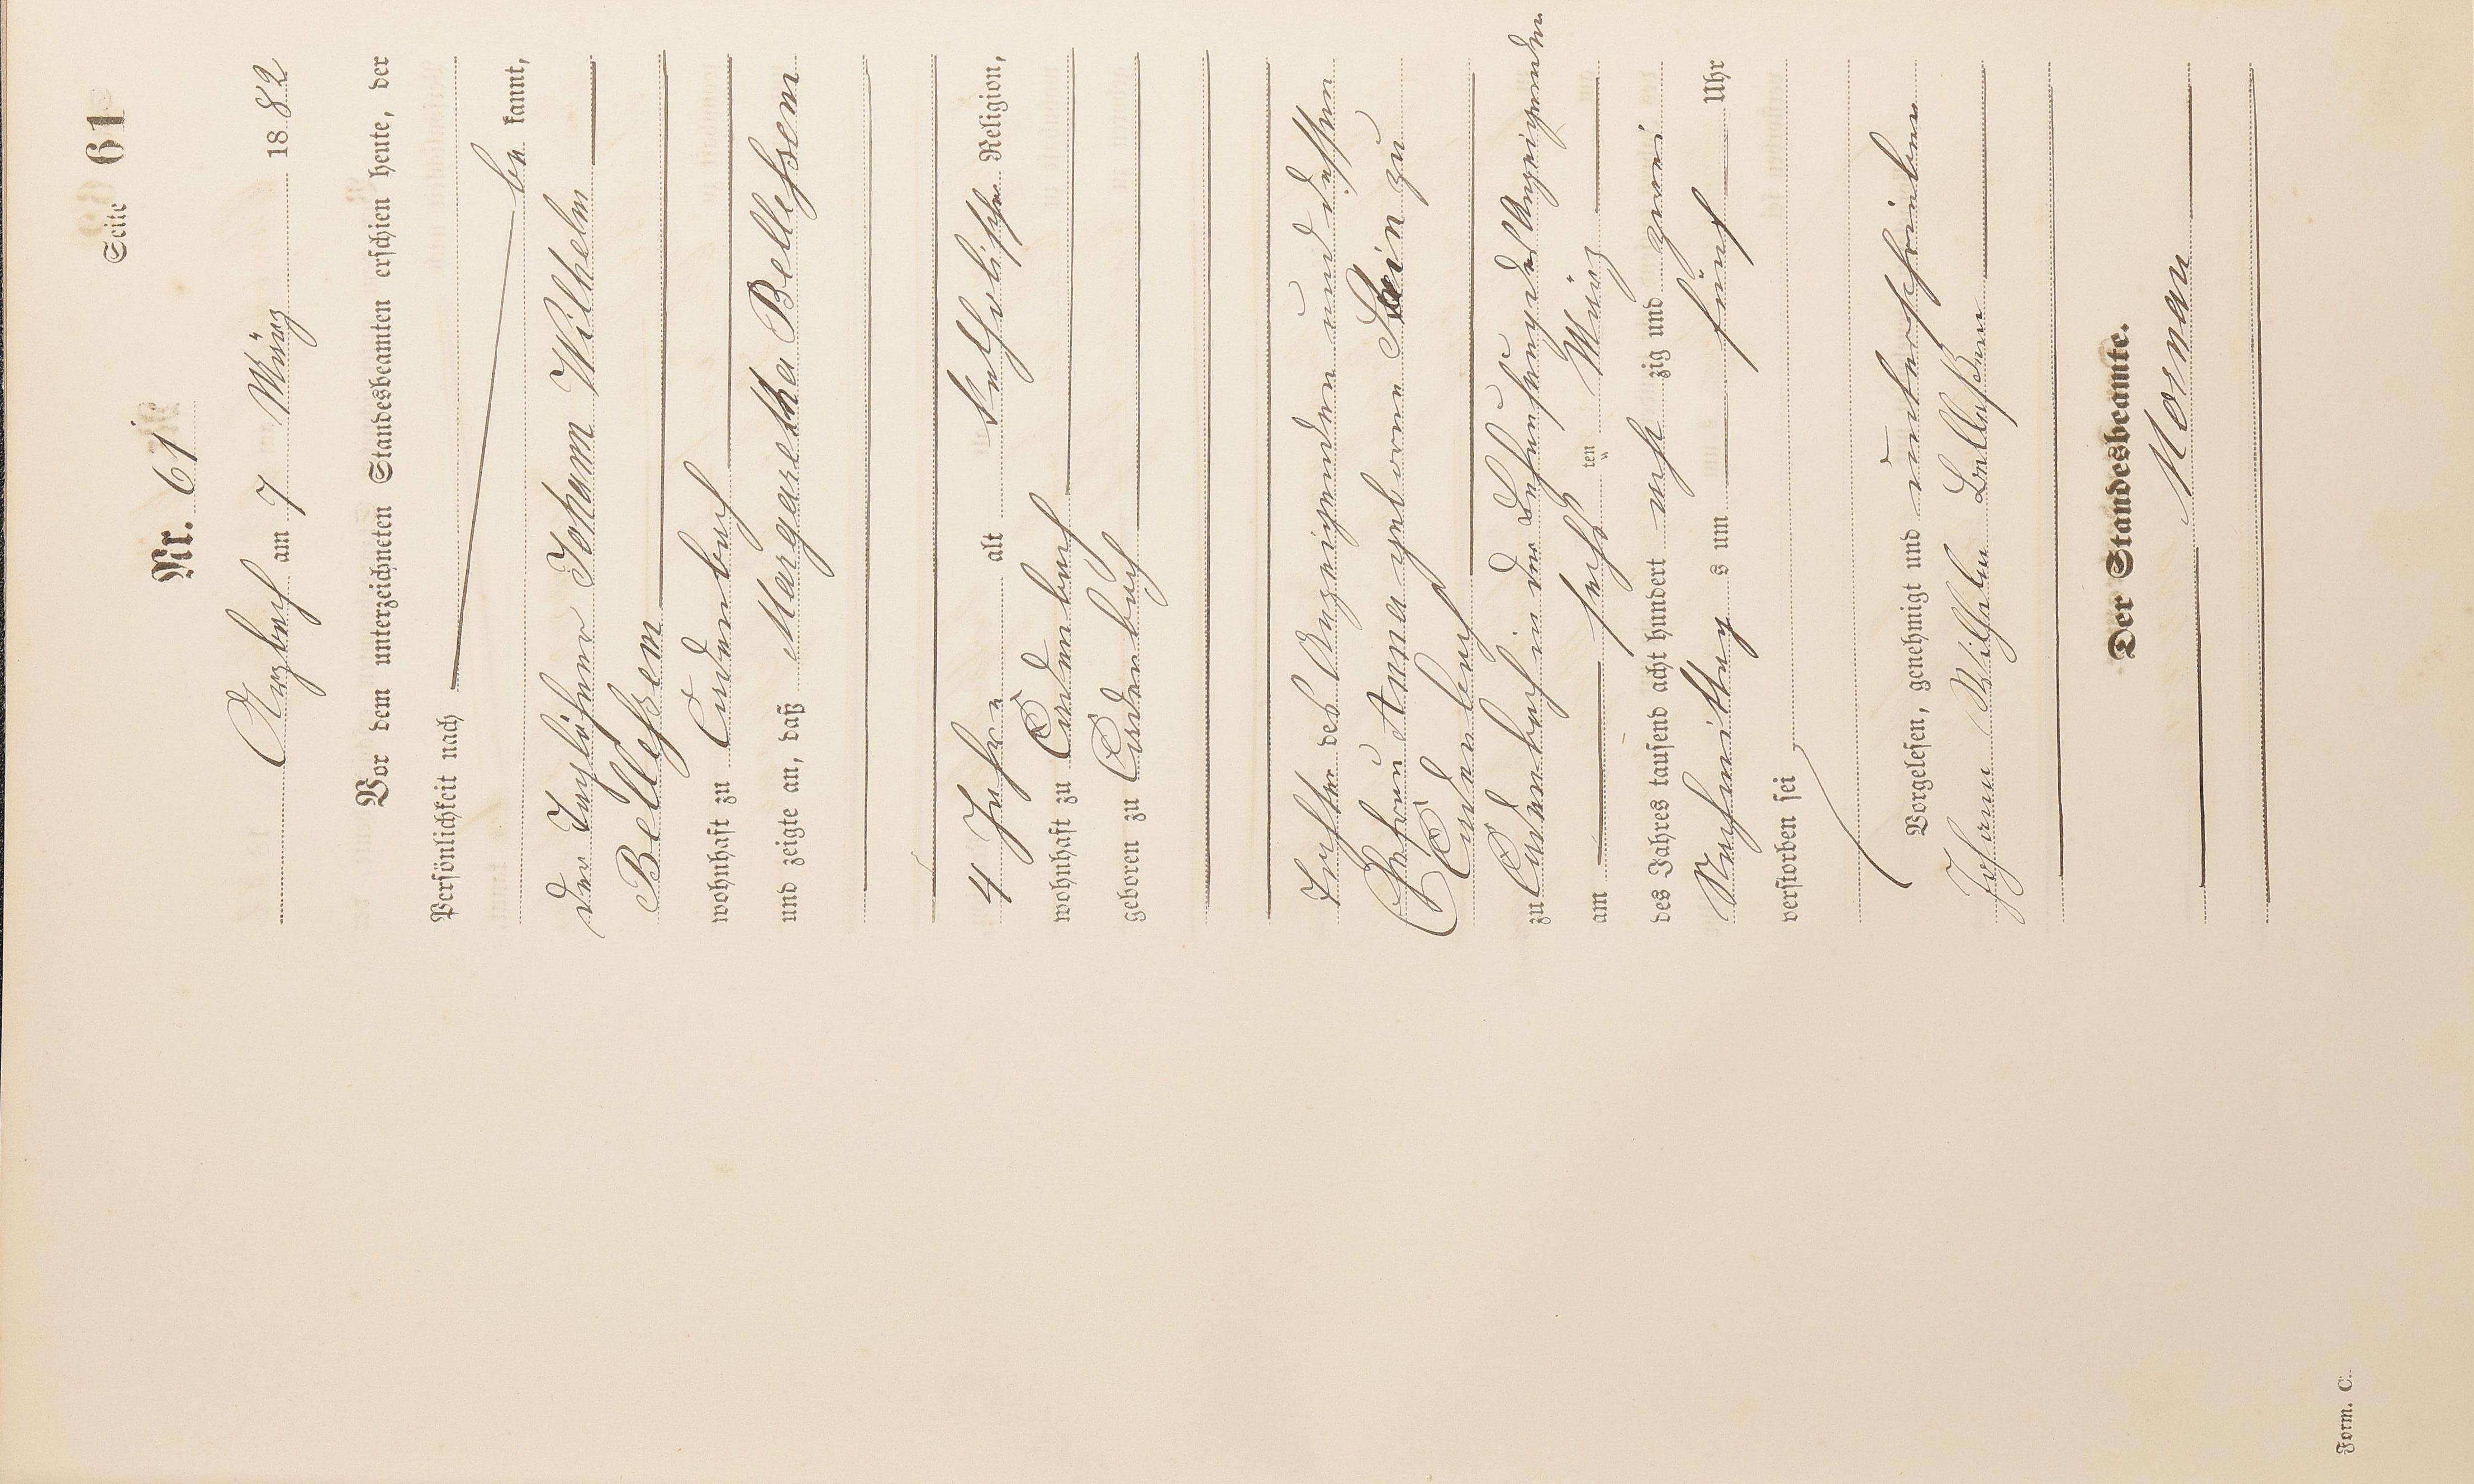 Seite 61
Nr. 61
Arzbach am 7 März 1882
Vor dem unterzeichneten Standesbeamten erschien heute, der
Persönlichkeit nach
be kannt,
der Taglöhner Johann Wilhelm
Bellefszem
wohnhaft zu Cadenbach
und zeigte an, daß Margaretha Bellefssem
4 Jahre alt katholischer Religion,
wohnhaft zu Cadenbach
geboren zu Cadenbach
Tochter des Anzeigenden und dessen
Ehefrau Anna geborne zu
Cadenbach
zu Cadenbach in der Behausung des Anzeigenden
am sechs ten März
des Jahres tausend acht hundert acht zig und zwei
Nachmittag s um fünf Uhr
verstorben sei
Vorgelesen, genehmigt und unterschrieben
Johann Wilhelm Bellefszem
Der Standesbeamte.
Form. C.